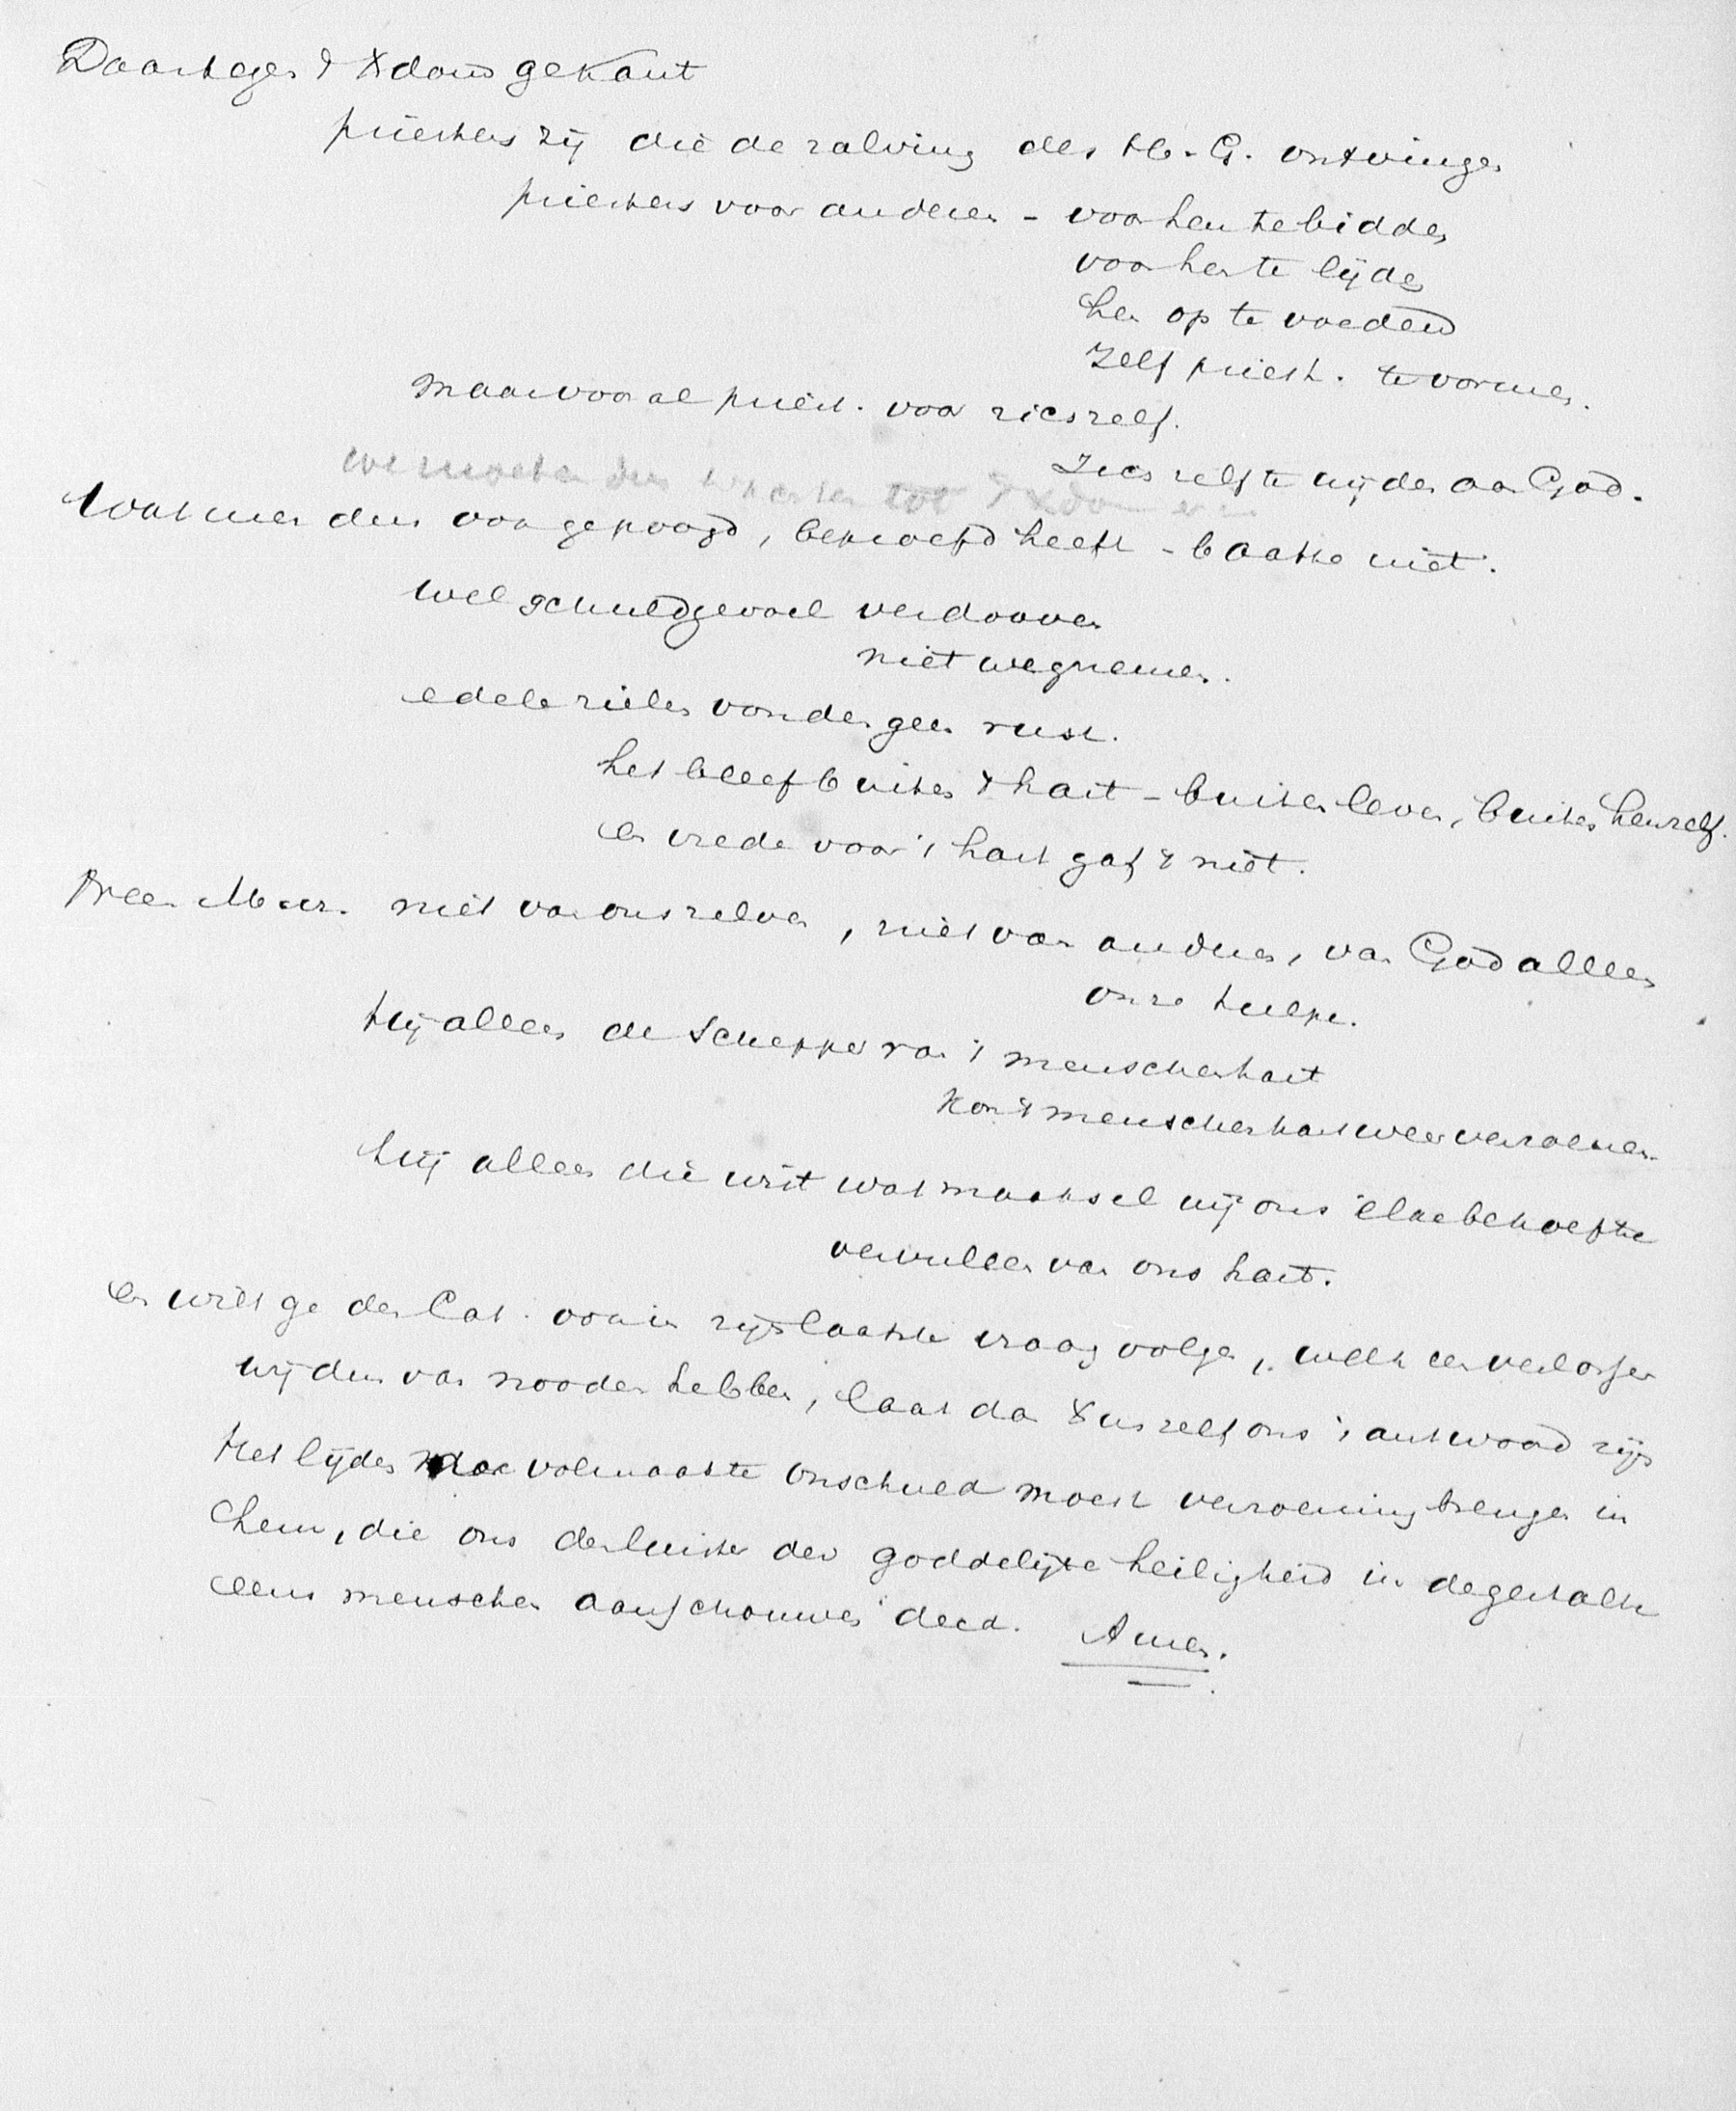 Daartegen 't Xdom gekant
priesters zij die de zalving des H. G. ontvingen
priesters voor anderen - voor hen te bidden
voor hen te lijden
hen op te voeden
zelf priest. te vormen.
maar vooral priest. voor zichzelf.
zich zelf te wijden aan God.
we moeten dus tot 't Xdom
Wat men dus ook gepoogd, beproefd heeft - baatte niet.
wel schuldgevoel verdooven
niet wegnemen.
edele zielen vonden geen rust.
het bleef buiten 't hart - buiten leven, buiten henzelf.
en vrede voor 't hart gaf 't niet.
Neen niet van ons zelven, niet van anderen, van God alleen
onze hulpe.
Hij alleen de Schepper van 't menschenhart
kon 't menschenhart weer verzoenen
Hij alleen die wist wat maaksel wij ons elke behoefte
vervullen van ons hart.
en wilt ge den Cat. ook in zijn laatste vraag volgen, welk een verlosser
wij dus van nooden hebben, laat dan Xus zelf ons 't antwoord zijn
Het lijden der volmaakte onschuld moest verzoening brengen in
hem, die ons den luister der goddelijke heiligheid in de gestalte
eens menschen aanschouwen deed. Amen.